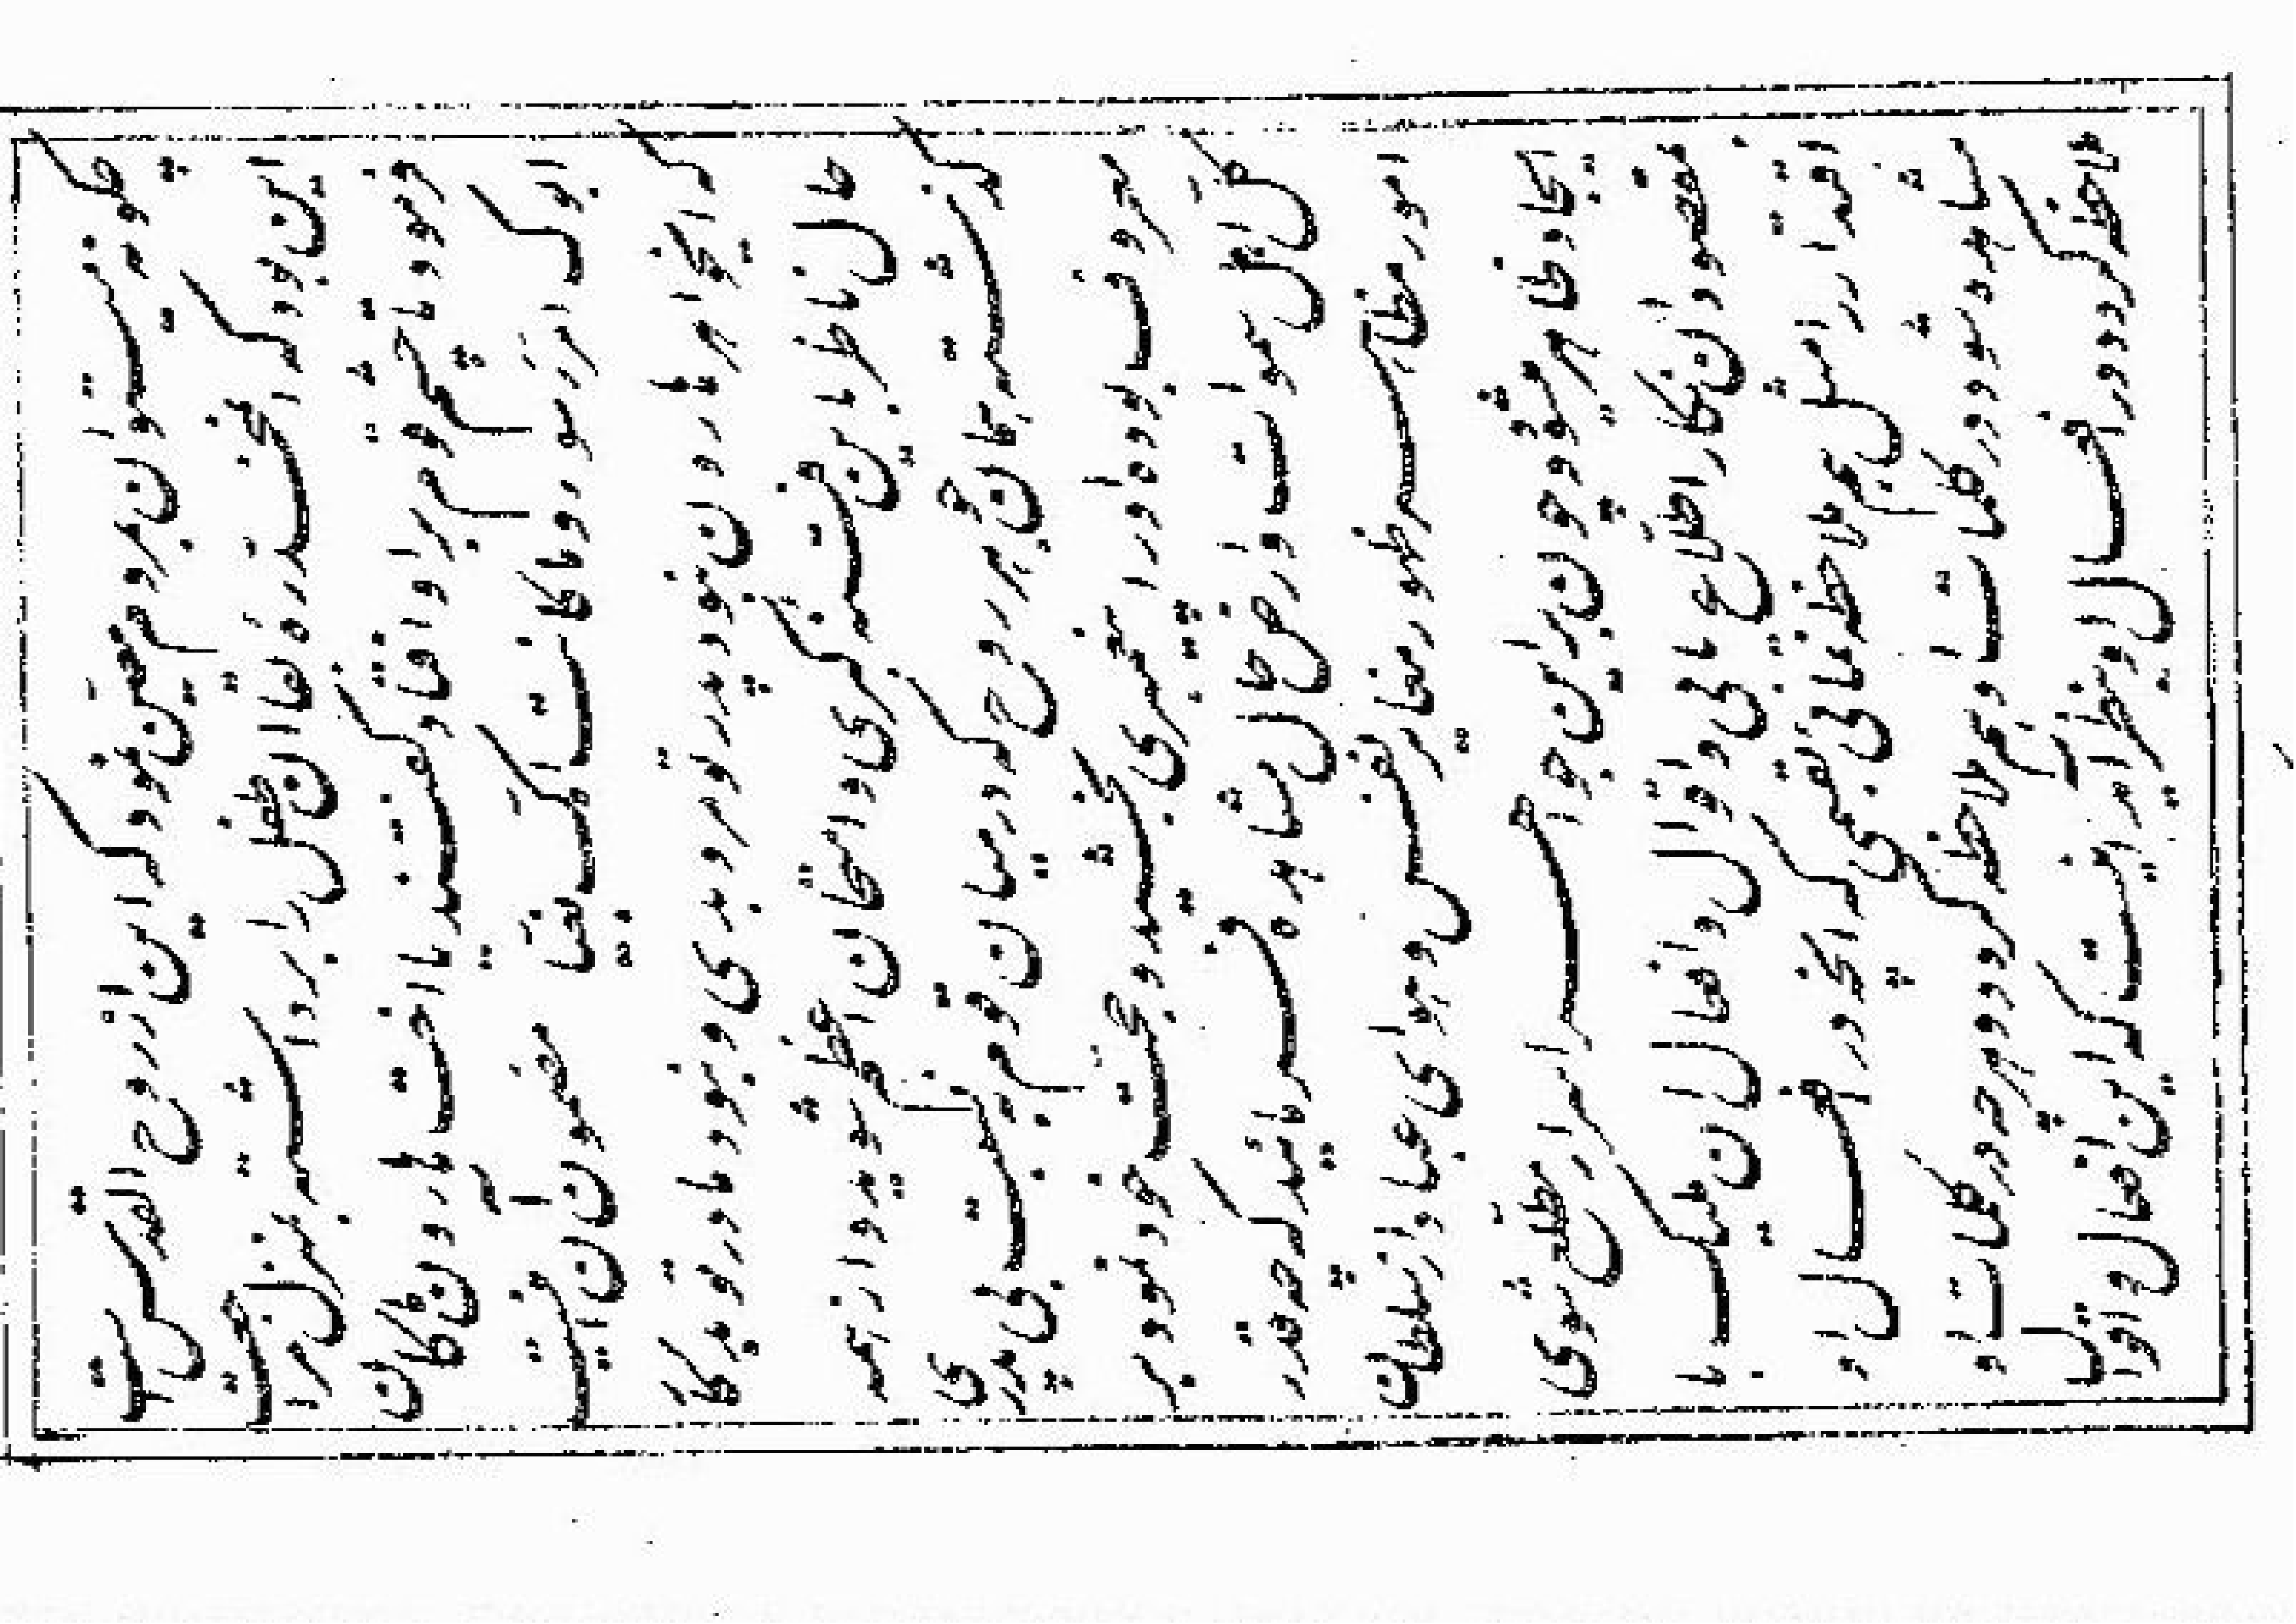 چگونه میتوان بمردم معین نمود که این از روح القدس است
این بود که ان مخدره بقا ان طفل را برداشته بمنزل مراجعت
فرمود تا چشم قوم بر او افتاد گفتند یا اخت هارون ما کان
ابوک امرء سوء و ما کانت امک بغیا مضمون ان این است
که ایخواهر هارون نبود پدر تو مرد بدی و نبود مادر تو بدکار
حال ناظر باین فتنه کبری و امتحان عظمی شوید و از همه
گذشته همان جوهر روح که در میان قوم به بی پدری
معروف بود او را پیغمبری بخشید و حجت خود نمود بر
کل اهل سموات و ارض حال مشاهده فرمائید که چقدر
امور مظاهر ظهور مغایر نفس و هوای عباد از سلطان
ایجاد ظاهر میشود و چون براین جواهر اسرار مطلع شوی
مقصود ان نگار را اطلاع یابی و اقوال و افعال ان ملیک با
اقتدار را مثل هم ملاحظه نمائی بقسمی که انچه در افعال او
مشاهده شود در کلمات او ملاحظه گردد و هرچه در کلمات او
ملاحظه گردد در افعال او بنظر آید اینست که این افعال و اقوال